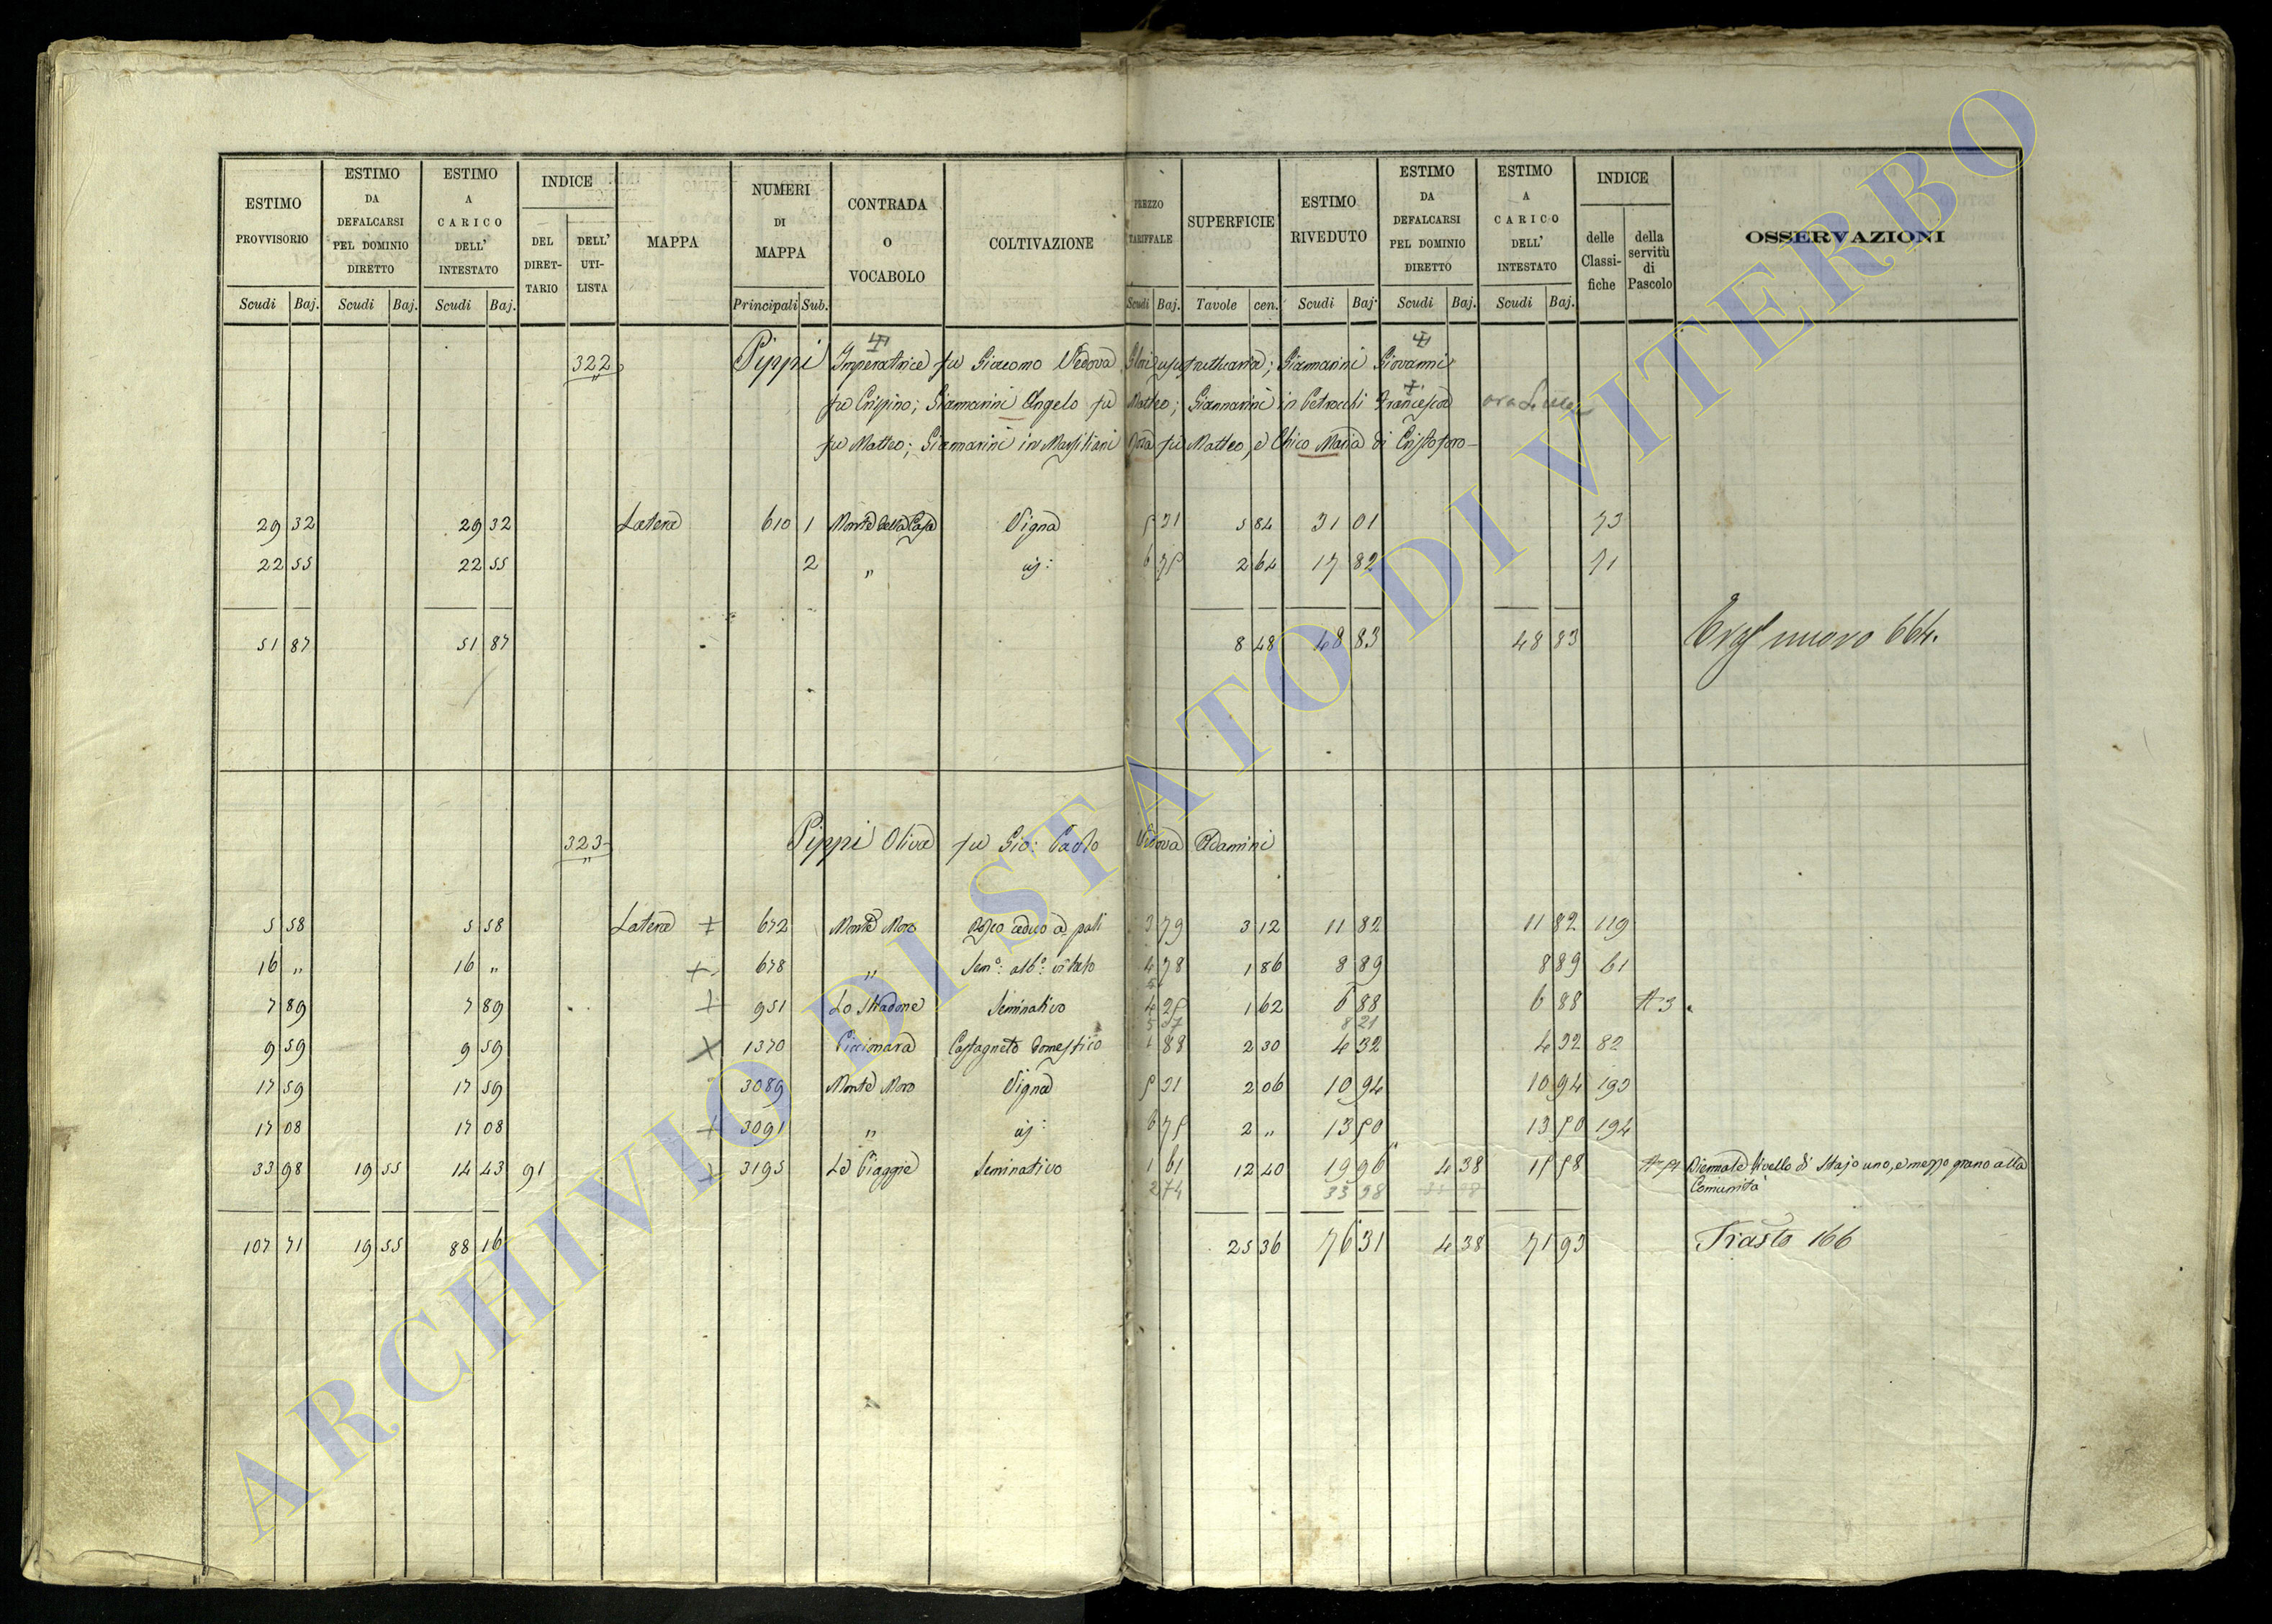 ESTIMO PROVVISORIO | ESTIMO DA DEFALCARSI PEL DOMINIO DIRETTO | ESTIMO A CARICO DELL' INTESTATO | INDICE | MAPPA | NUMERI DI MAPPA | CONTRADA O VOCABOLO | COLTIVAZIONE | PREZZO TARIFFALE | SUPERFICIE | ESTIMO RIVEDUTO | ESTIMO DA DEFALCARSI PEL DOMINIO DIRETTO | ESTIMO A CARICO DELL' INTESTATO | INDICE | OSSERVAZIONI
DEL DIRETTARIO | DELL' UTILISTA | delle Classifiche | della servitù di Pascolo
Scudi Baj. | Scudi Baj. | Scudi Baj. | Principali Sub. | Scudi Baj. | Tavole cen. | Scudi Baj. | Scudi Baj. | Scudi Baj.
322 Pippi Imperatrice fu Giacomo Vedova usufruttuaria; Giannarini Giovanni
fu Crispino; Giannarini Angelo fu Matteo; Giannarini in Petrocchi Francesca ora
fu Matteo; Giannarini in Marsiliani Rosa fu Matteo, e Chico Maria di Cristoforo
29 32 | 29 32 | Latera | 610 | 1 | Monte della Casa | Vigna | 5 31 | 5 84 | 31 01 | 73
22 55 | 22 55 | 2 | „ | id: | 6 75 | 2 64 | 17 82 | 71
51 87 | 51 87 | 8 48 | 48 83 | 48 83 | nuovo 664.
323 Pippi Oliva fu Gio: Paolo Vedova Adamini
5 58 | 5 58 | Latera + | 672 | Monte Moro | Bosco ceduo a pali | 3 79 | 3 12 | 11 82 | 11 82 | 119
16 „ | 16 „ | + | 678 | „ | Sem.o: alb.o: vitato | 4 78 | 1 86 | 8 89 | 8 89 | 61
7 89 | 7 89 | + | 951 | Lo Stradone | Seminativo | 4 25 | 1 62 | 6 88 | 6 88 | A 3
5 07 | 8 21
9 59 | 9 59 | + | 1370 | Piccionara | Castagneto domestico | 1 88 | 2 30 | 4 32 | 4 32 | 82
17 59 | 17 59 | 3089 | Monte Moro | Vigna | 5 31 | 2 06 | 10 94 | 10 94 | 193
17 08 | 17 08 | + | 3091 | „ | id: | 6 75 | 2 „ | 13 50 | 13 50 | 194
33 98 | 19 55 | 14 43 | 91 | + | 3195 | Le Piaggie | Seminativo | 1 61 | 12 40 | 19 96 | 4 38 | 15 58 | Biennale livello di Stajo uno, e mezzo grano alla
2 74 | 33 98 | Comunità
107 71 | 19 55 | 88 16 | 25 36 | 76 31 | 4 38 | 71 93 | 166
ARCHIVIO DI STATO DI VITERBO